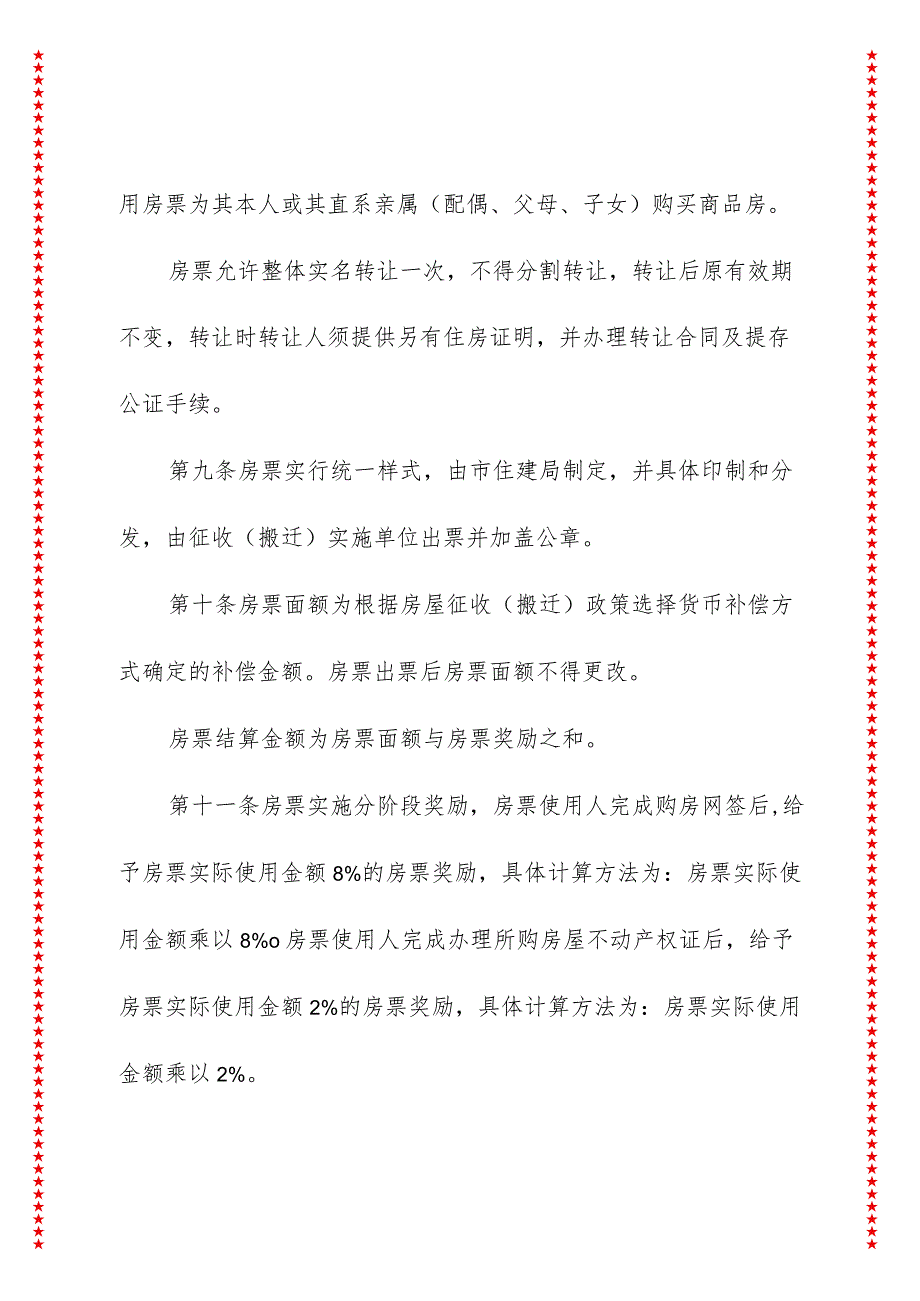 用房票为其本人或其直系亲属（配偶、父母、子女）购买商品房。
房票允许整体实名转让一次，不得分割转让，转让后原有效期
不变，转让时转让人须提供另有住房证明，并办理转让合同及提存
公证手续。
第九条房票实行统一样式，由市住建局制定，并具体印制和分
发，由征收（搬迁）实施单位出票并加盖公章。
第十条房票面额为根据房屋征收（搬迁）政策选择货币补偿方
式确定的补偿金额。房票出票后房票面额不得更改。
房票结算金额为房票面额与房票奖励之和。
第十一条房票实施分阶段奖励，房票使用人完成购房网签后,给
予房票实际使用金额8%的房票奖励，具体计算方法为：房票实际使
用金额乘以8%o房票使用人完成办理所购房屋不动产权证后，给予
房票实际使用金额2%的房票奖励，具体计算方法为：房票实际使用
金额乘以2%。